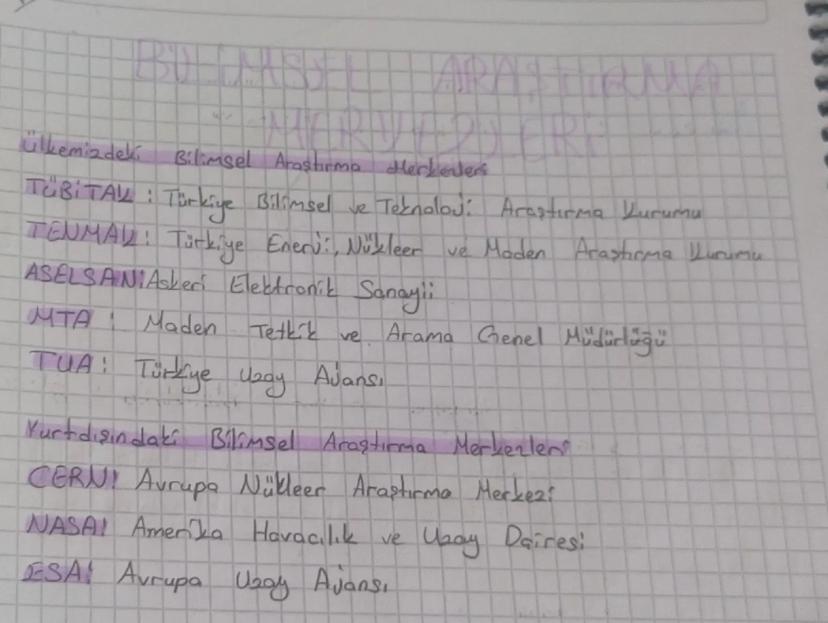 BİLİMSEL ARAŞTIRMA
MERKEZLERİ
Ülkemizdeki Bilimsel Araştırma Merkezleri
TÜBİTAK : Türkiye Bilimsel ve Teknoloji Araştırma Kurumu
TENMAK : Türkiye Enerji, Nükleer ve Maden Araştırma Kurumu
ASELSAN : Askeri Elektronik Sanayii
MTA : Maden Tetkik ve Arama Genel Müdürlüğü
TUA : Türkiye Uzay Ajansı
Yurtdışındaki Bilimsel Araştırma Merkezleri
CERN : Avrupa Nükleer Araştırma Merkezi
NASA : Amerika Havacılık ve Uzay Dairesi
ESA : Avrupa Uzay Ajansı